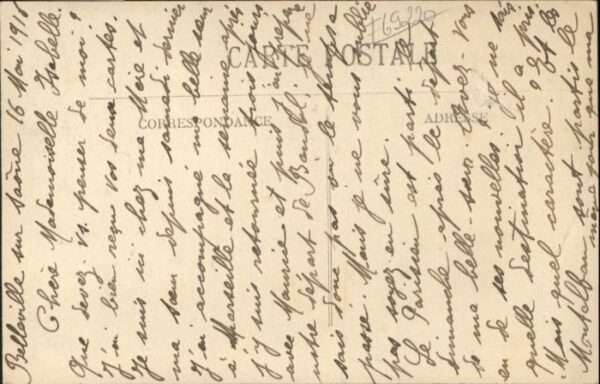 169220
CARTE POSTALE
CORRESPONDANCE
ADRESSE
Belleville sur Saône 16 Mai 1918
Chère Mademoiselle Isabelle.
Que devez vs. penser de moi ?
J'ai bien reçu vos deux cartes.
Je suis ici chez ma Mère et
ma sœur depuis samedi dernier
J'ai accompagné ma belle sœur
à Marseille et la semaine après
j'y suis retournée trois jours
avec Maurice et puis
votre départ de Bandol. je ne
sais donc pas où le temps a
passé. Mais je ne vous oublie
pas soyez en sûre.
Le Parisien est parti le
dimanche après le départ
de ma belle-sœur. Avez-vous
eu de ses nouvelles. je ne sais
quelle destination il a pris.
Mais quel caractère. Et les
Montalban sont partis le
même jour que ma